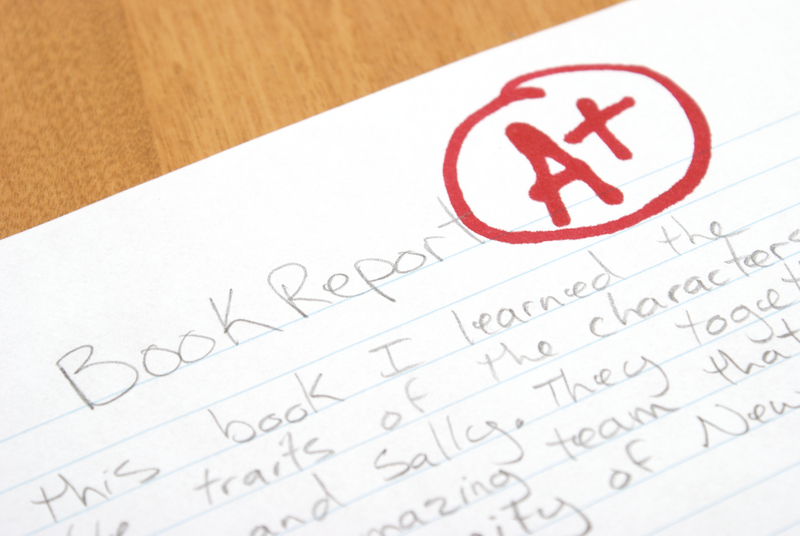 A+
Book Report
this book I learned the
traits of the characters
and Sally. They toget
mazing team that
nity of New